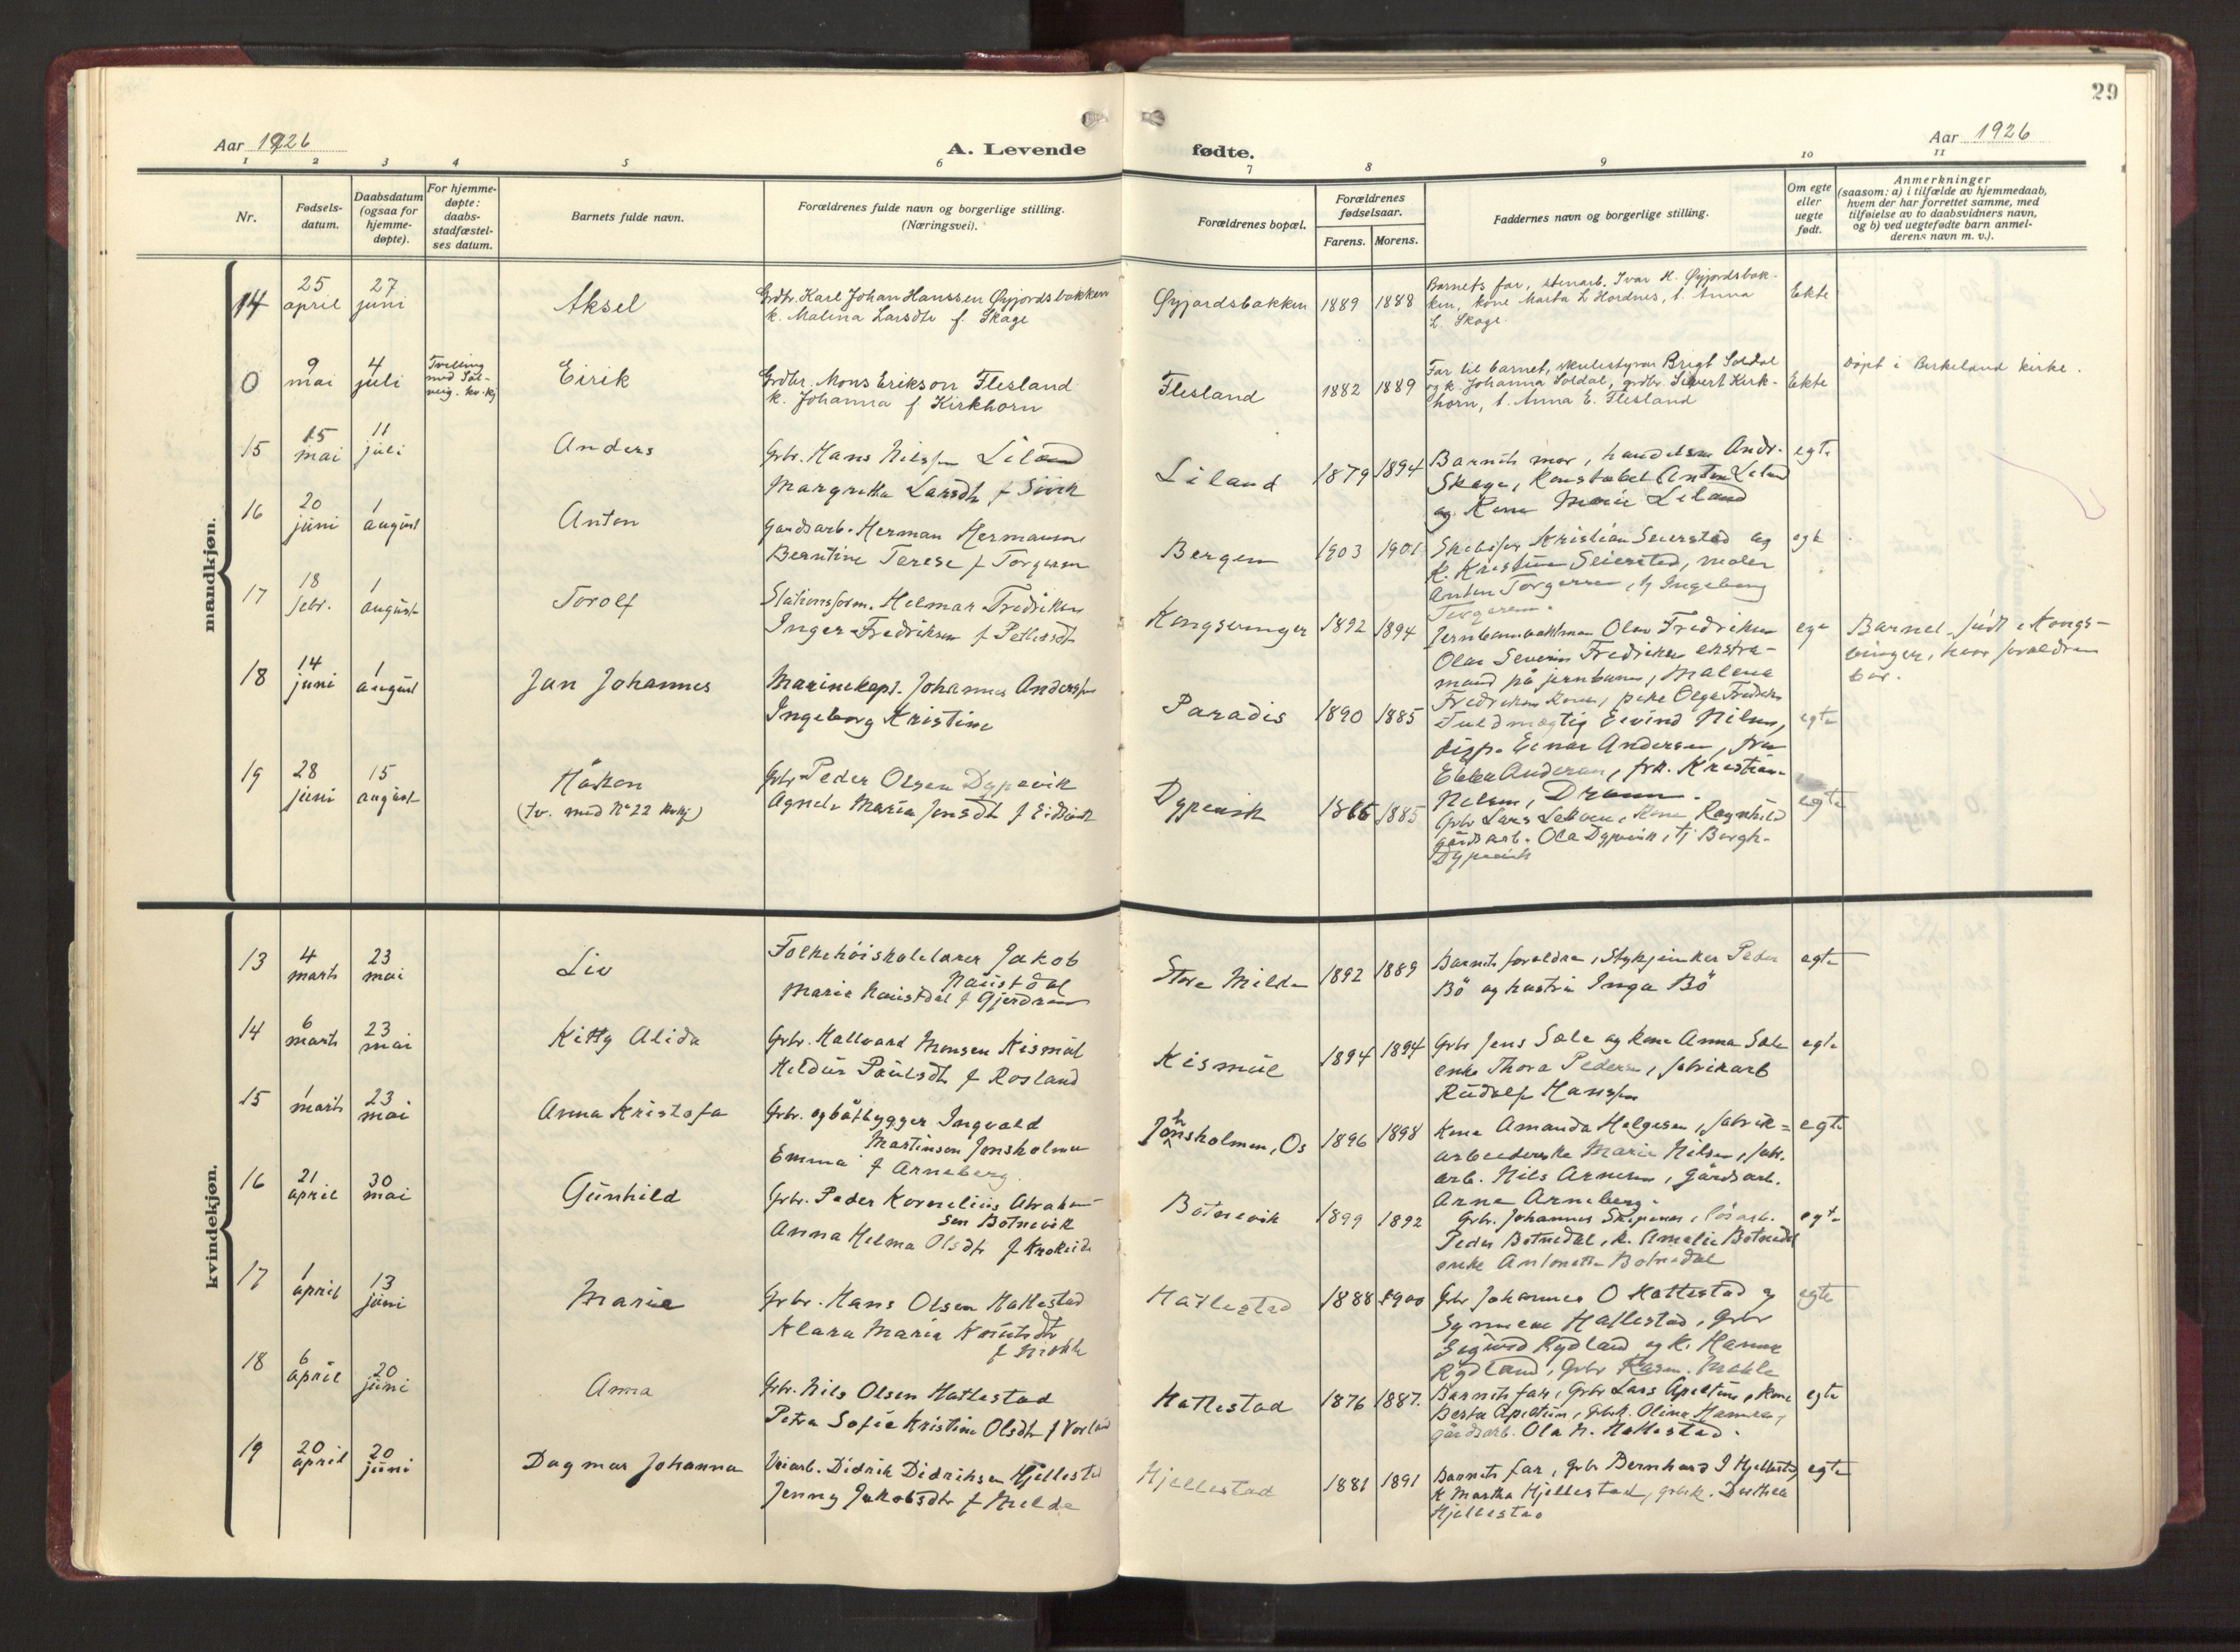 29
Aar 1926
A. Levende
fødte.
Aar 1926
1 2 3 4 5 6 7 8 9 10 11
Nr.
Fødsels-
datum.
Daabsdatum
(ogsaa for
hjemme-
døpte).
For hjemme-
døpte:
daabs-
stadfæstel-
ses datum.
Barnets fulde navn.
Forældrenes fulde navn og borgerlige stilling.
(Næringsvei).
Forældrenes bopæl.
Forældrenes
fødselsaar.
Farens. Morens.
Faddernes navn og borgerlige stilling.
Om egte
eller
uegte
født.
Anmerkninger
(saasom: a) i tilfælde av hjemmedaab,
hvem der har forrettet samme, med
tilføielse av to daabsvidners navn,
og b) ved uegtefødte barn anmel-
derens navn m. v.).
mandkjøn.
14
25
april
27
juni
Aksel
Grdbr. Karl Johan Hanssen Øyjordsbakken
k. Malina Larsdtr f. Skage
Øyjordsbakken
1889 1888
Barnets far, stenarb. Ivar H. Øyjordsbak-
ken, kone Marta L Hordnes, t. Anna
L. Skage.
Ekte
0
9
mai
4
juli
Tvilling
med Sol-
veig. kv.kj
Eirik
Grdbr. Mons Erikson Flesland
k. Johanna f Kirkhorn
Flesland
1882 1889
Far til barnet, skulestyrar Brigt Soldal
og k. Johanna Soldal, grdbr. Sivert Kirk-
horn, t. Anna E. Flesland
Ekte
Døpt i Birkeland kirke.
15
15
mai
11
juli
Anders
Grbr. Hans Nilssen Liland
Margretha Larsdtr f Søvik
Liland
1879 1894
Barnets mor, handelsm Andr.
Skage, Konstabel Anton Liland
og Kone Marie Liland
egte
16
20
juni
1
august
Anton
Gardsarb. Herman Hermansen
Berntine Terese f Torgersen
Bergen
1903 1901
Kristian Seierstad og
k. Kristine Seierstad, maler
Anton Torgersen, tj Ingeborg
Torgersen.
egte
17
18
febr.
1
august
Torolf
Stationsform. Helmar Fredriksen
Inger Fredriksen f Pettersdtr
Kongsvinger
1892 1894
Olav Fredriksen
Olav Severin Fredriksen ekstra-
mand på jernbanen, Malena
Fredriksen Kone, pike Olga Fredriksen
egte
Barnet født i Kongs-
vinger, hvor forældrene
bor.
18
14
juni
1
august
Jan Johannes
Marinekapt. Johannes Anderssen
Ingeborg Kristine
Paradis
1890 1885
Fuldmægtig Eivind Nilsen,
disp. Einar Andersen, fru
Ebba Andersen, frk. Kristiane
Nilsen,
egte
19
28
juni
15
august
Håkon
(tv. med No 22 kvkj)
Grbr Peder Olsen Dypevik
Agnete Maria Jensdtr f Eidsvik
Dypevik
1885
Grbr Lars Kone Ragnhild
gårdsarb. Ola Dypevik, tj Bergh.
Dypevik
egte
kvindekjøn.
13
4
marts
23
mai
Liv
Folkehøiskolelærer Jakob
Naustdal
Marie Naustdal f Gjerdram
Store Milde
1892 1889
Barnets forældre, Peder
Bö og hustru Inga Bö
egte
14
6
marts
23
mai
Kitty Alida
Grbr. Hallvard Monsen Kismul
Hildur Paulsdtr f Rosland
Kismul
1894 1894
Grbr Jens Sæle og kone Anna Sæle
enke Thora Pedersen, fabrikarb
Rudolf Hanssen
egte
15
1
marts
23
mai
Anna Kristofa
Grbr. og båtbygger Ingvald
Martinsen Jonsholmen
Emma f Arneberg
Johnsholmen, Os
1896 1898
Kone Amanda Helgesen, fabrik-
arbeiderske Marie Nilsen, fab.
arb. Nils Arnesen, gårdsarb.
Arne Arneberg.
egte
16
21
april
30
mai
Gunhild
Grbr. Peder Kornelius Abraham-
sen Botnevik
Anna Helma Olsdtr f Krokeide
Botnevik
1899 1892
Grbr. Johannes Skipenes, løsarb.
Peder Botnedal, k. Amalie Botnedal
enke Antonette Botnedal
egte
17
1
april
13
juni
Marie
Grbr. Hans Olsen Hattestad
Klara Maria Knutsdtr
Hattestad
1888 1900
Grbr Johannes O Hattestad og
Synneve Hattestad, Grbr
Sigurd Rydland og k. Hanna
Rydland, Grbr
egte
18
6
april
20
juni
Anna
Grbr. Nils Olsen Hattestad
Petra Sofie Kristine Olsdtr f Vorland
Hattestad
1876 1887.
Barnets far, Grbr Lars Apeltun, kone
Berta Apeltun, Grbrk. Olina Hamre,
gårdsarb. Ola N. Hattestad.
egte
19
20
april
20
juni
Dagmar Johanna
Veiarb. Didrik Didriksen Hjellestad
Jenny Jakobsdtr f Milde
Hjellestad
1881 1891
Barnets far, Grbr Bernhard I Hjellestad,
k Martha Hjellestad, grbrk. Dorthea
Hjellestad
egte